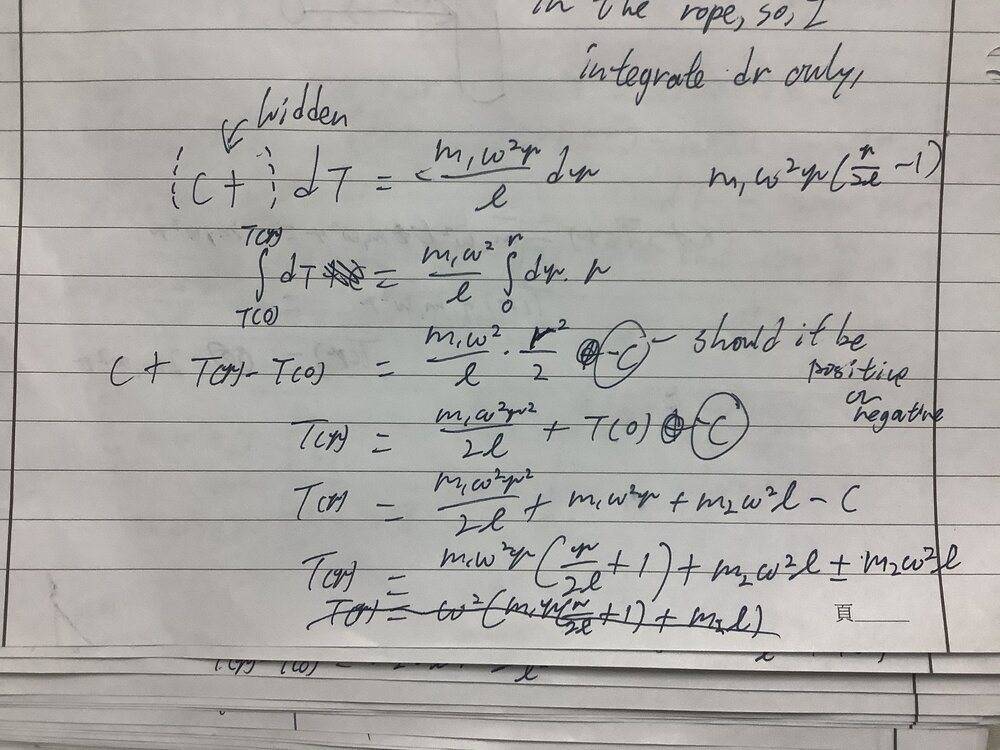 in the rope, so, I
integrate dr only,
hidden
(C +) dT = - m₁ω²r/l dr
m₁ω²r(r/2l - 1)
∫_{T(0)}^{T(r)} dT = m₁ω²/l ∫_0^r dr. r
C + T(r) - T(0) = m₁ω²/l · r²/2 - C - should it be
positive
or
negative
T(r) = m₁ω²r²/2l + T(0) - C
T(r) = m₁ω²r²/2l + m₁ω²r + m₂ω²l - C
T(r) = m₁ω²r(r/2l + 1) + m₂ω²l ± m₂ω²l
T(r) = ω²(m₁r(r/2l + 1) + m₂l)
頁